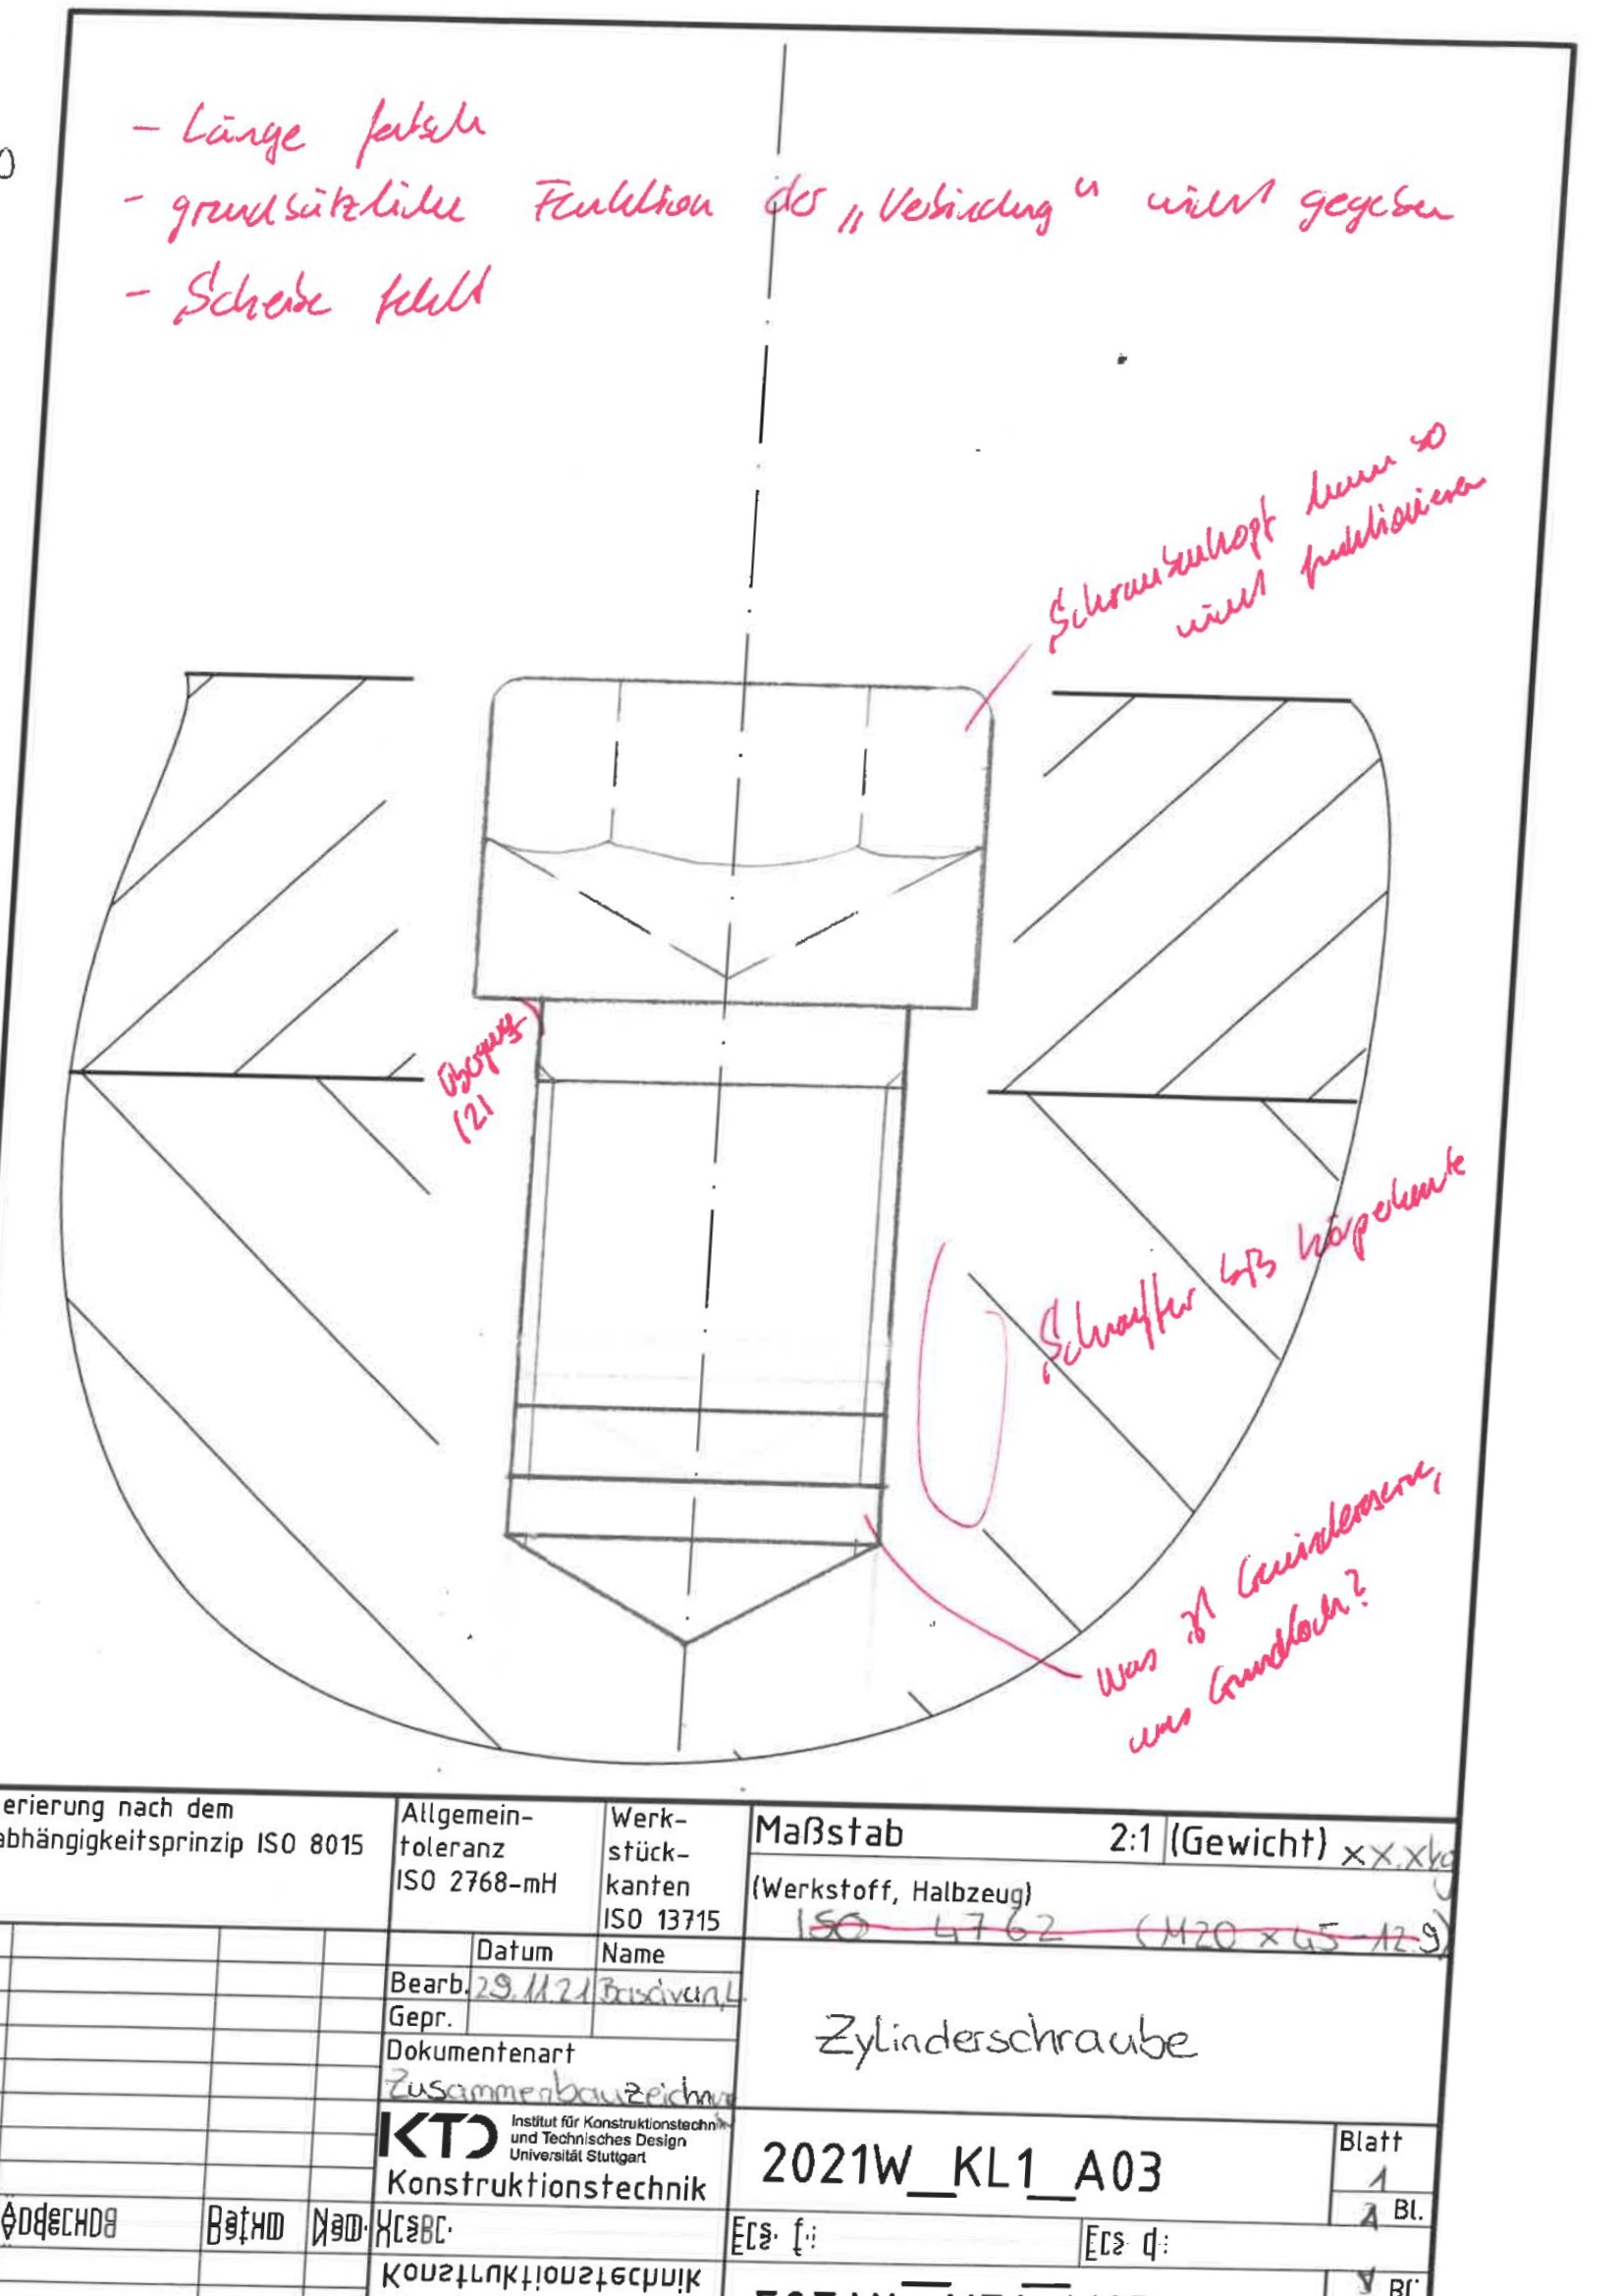 - Länge falsch
- grundsätzliche Funktion der „Verbindung" nicht gegeben
- Scheibe fehlt
Schraubenkopf kann so
nicht funktionieren
(2)
Schraffur bis Körperkante
was ist
was Grundloch?
erierung nach dem
abhängigkeitsprinzip ISO 8015
Allgemein-
toleranz
ISO 2768-mH
Werk-
stück-
kanten
ISO 13715
Maßstab 2:1 (Gewicht) xx.xkg
(Werkstoff, Halbzeug)
ISO 4762 (M20 x 45-12.9)
Datum Name
Bearb. 29.11.21
Gepr.
Dokumentenart
Zusammenbauzeichnung
Zylinderschraube
KTD
Institut für Konstruktionstechnik
und Technisches Design
Universität Stuttgart
Konstruktionstechnik
2021W_KL1_A03
Blatt
1
Bl.